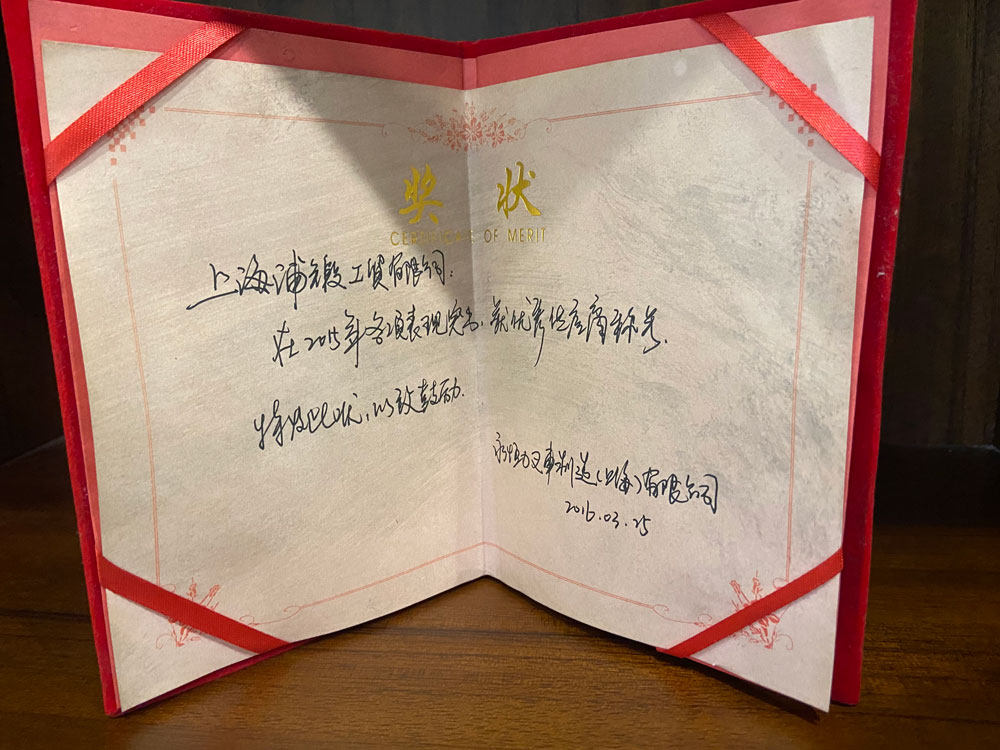 奖 状
CERTIFICATE OF MERIT
上海浦锻工贸有限公司:
在2015年各项表现突出、获优秀供应商称号.
特发此状,以致鼓励.
永恒力叉车制造(上海)有限公司
2016.03.25